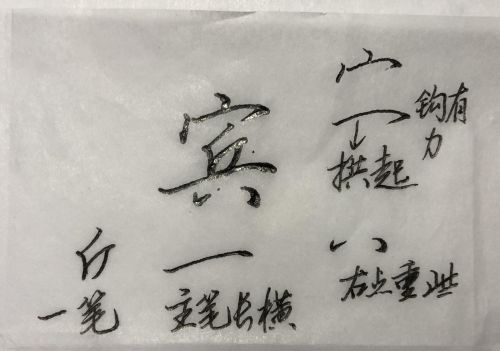 宀
钩有力
拱起
宾
丷
右点重些
斤
一笔
一
主笔长横